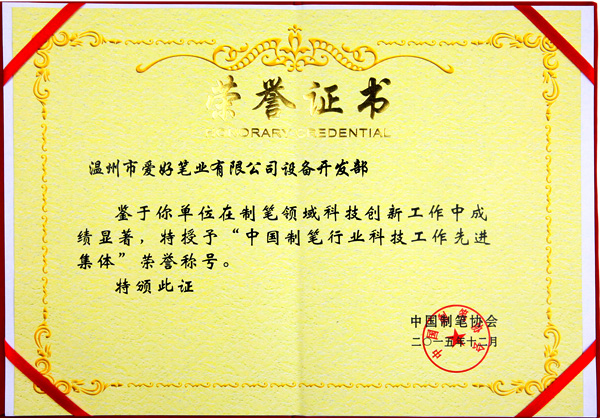 荣誉证书
HONORARY CREDENTIAL
温州市爱好笔业有限公司设备开发部
鉴于你单位在制笔领域科技创新工作中成
绩显著，特授予“中国制笔行业科技工作先进
集体”荣誉称号。
特颁此证
中国制笔协会
二〇一五年十二月
中国制笔协会